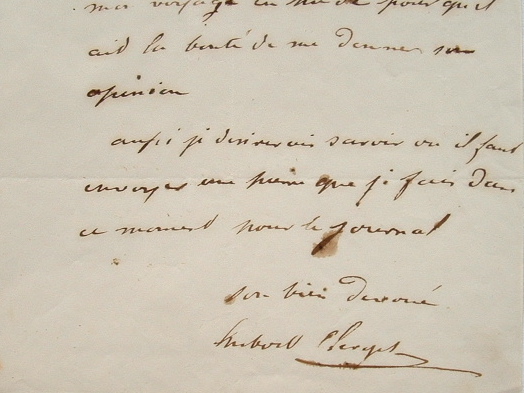 mon voyage en Suisse pour qu'il
ait la bonté de me donner son
opinion
aussi je désirerais savoir où il faut
envoyer une pierre que je fais dans
ce moment pour le journal
son bien dévoué
Hubert Clerget